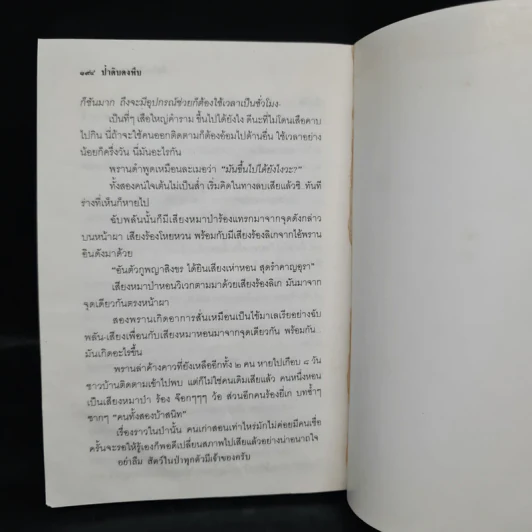 ๑๙๔ ป่าดับดงทึบ
ก็ชันมาก ถึงจะมีอุปกรณ์ช่วยก็ต้องใช้เวลาเป็นชั่วโมง
เป็นที่ๆ เสือใหญ่คำราม ขึ้นไปได้ยังไง ดีนะที่ไม่โดนเสือคาบ
ไปกิน นี่ถ้าจะใช้คนออกติดตามก็ต้องอ้อมไปด้านอื่น ใช้เวลาอย่าง
น้อยก็ครึ่งวัน นี่มันอะไรกัน
พรานดำพูดเหมือนละเมอว่า “มันขึ้นไปได้ยังไงวะ?”
ทั้งสองคนใจเต้นไม่เป็นส่ำ เริ่มคิดในทางลบเสียแล้วซิ ทันที
ร่างที่เห็นก็หายไป
ฉับพลันนั้นก็มีเสียงหมาป่าร้องแทรกมาจากจุดดังกล่าว
บนหน้าผา เสียงร้องโหยหวน พร้อมกับมีเสียงร้องลิเกจากไอ้พราน
อินดังมาด้วย
“อันตัวกูพญาสิงขร ได้ยินเสียงเห่าหอน สุดรำคาญอุรา”
เสียงหมาป่าหอนวิเวกตามมาด้วยเสียงร้องลิเก มันมาจาก
จุดเดียวกันตรงหน้าผา
สองพรานเกิดอาการสั่นเหมือนเป็นไข้มาเลเรียอย่างฉับ
พลัน-เสียงเพื่อนกับเสียงหมาหอนมาจากจุดเดียวกัน พร้อมกัน
มันเกิดอะไรขึ้น
พรานล่าค้างคาวที่ยังเหลืออีกทั้ง ๒ คน หายไปเกือบ ๘ วัน
ชาวบ้านติดตามเข้าไปพบ แต่ก็ไม่ใช่คนเดิมเสียแล้ว คนหนึ่งหอน
เป็นเสียงหมาป่า ร้อง จ๊อกๆๆๆ ว้อ ส่วนอีกคนร้องยี่เก บทซ้ำๆ
ซากๆ “คนทั้งสองบ้าสนิท”
เรื่องราวในป่านั้น คนเก่าสอนเท่าไหร่มักไม่ค่อยมีคนเชื่อ
ครั้นจะรอให้รู้เองก็พอดีเปลี่ยนสภาพไปเสียแล้วอย่างน่าอนาถใจ
อย่าลืม สัตว์ในป่าทุกตัวมีเจ้าของครับ